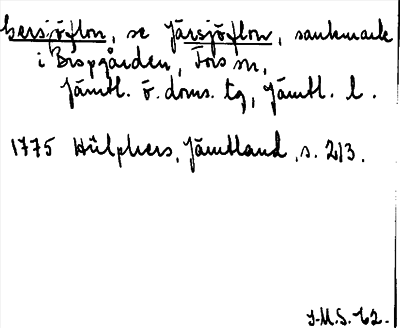 Gersjöflon, se Järsjöflon, sankmark
i Bispgården, Fors sn,
Jämtl. ö. doms. tg, Jämtl. l.
1775 Hülphers, Jämtland, s. 213.
J.M.S. 62.